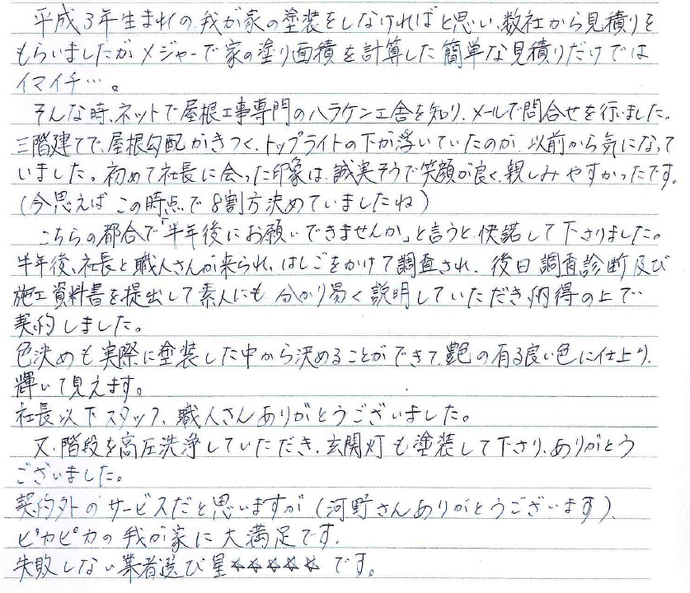 平成3年生まれの我が家の塗装をしなければと思い、数社から見積りを
もらいましたがメジャーで家の塗り面積を計算した簡単な見積りだけでは
イマイチ…。
そんな時、ネットで屋根工事専門のハラケン工舎を知り、メールで問合せを行いました。
三階建てで、屋根勾配がきつく、トップライトの下が浮いていたのが、以前から気になって
いました。初めて社長に会った印象は、誠実そうで笑顔が良く、親しみやすかったです。
(今思えばこの時点で8割方決めていましたね)
こちらの都合で「半年後にお願いできませんか」と言うと、快諾して下さりました。
半年後、社長と職人さんが来られ、はしごをかけて調査され、後日調査診断及び
施工資料書を提出して素人にも分かり易く説明していただき、納得の上で
契約しました。
色決めも実際に塗装した中から決めることができて、艶の有る良い色に仕上り、
輝いて見えます。
社長以下スタッフ、職人さんありがとうございました。
又、階段を高圧洗浄していただき、玄関灯も塗装して下さり、ありがとう
ございました。
契約外のサービスだと思いますが(河野さんありがとうございます)、
ピカピカの我が家に大満足です。
失敗しない業者選び星☆☆☆☆☆です。